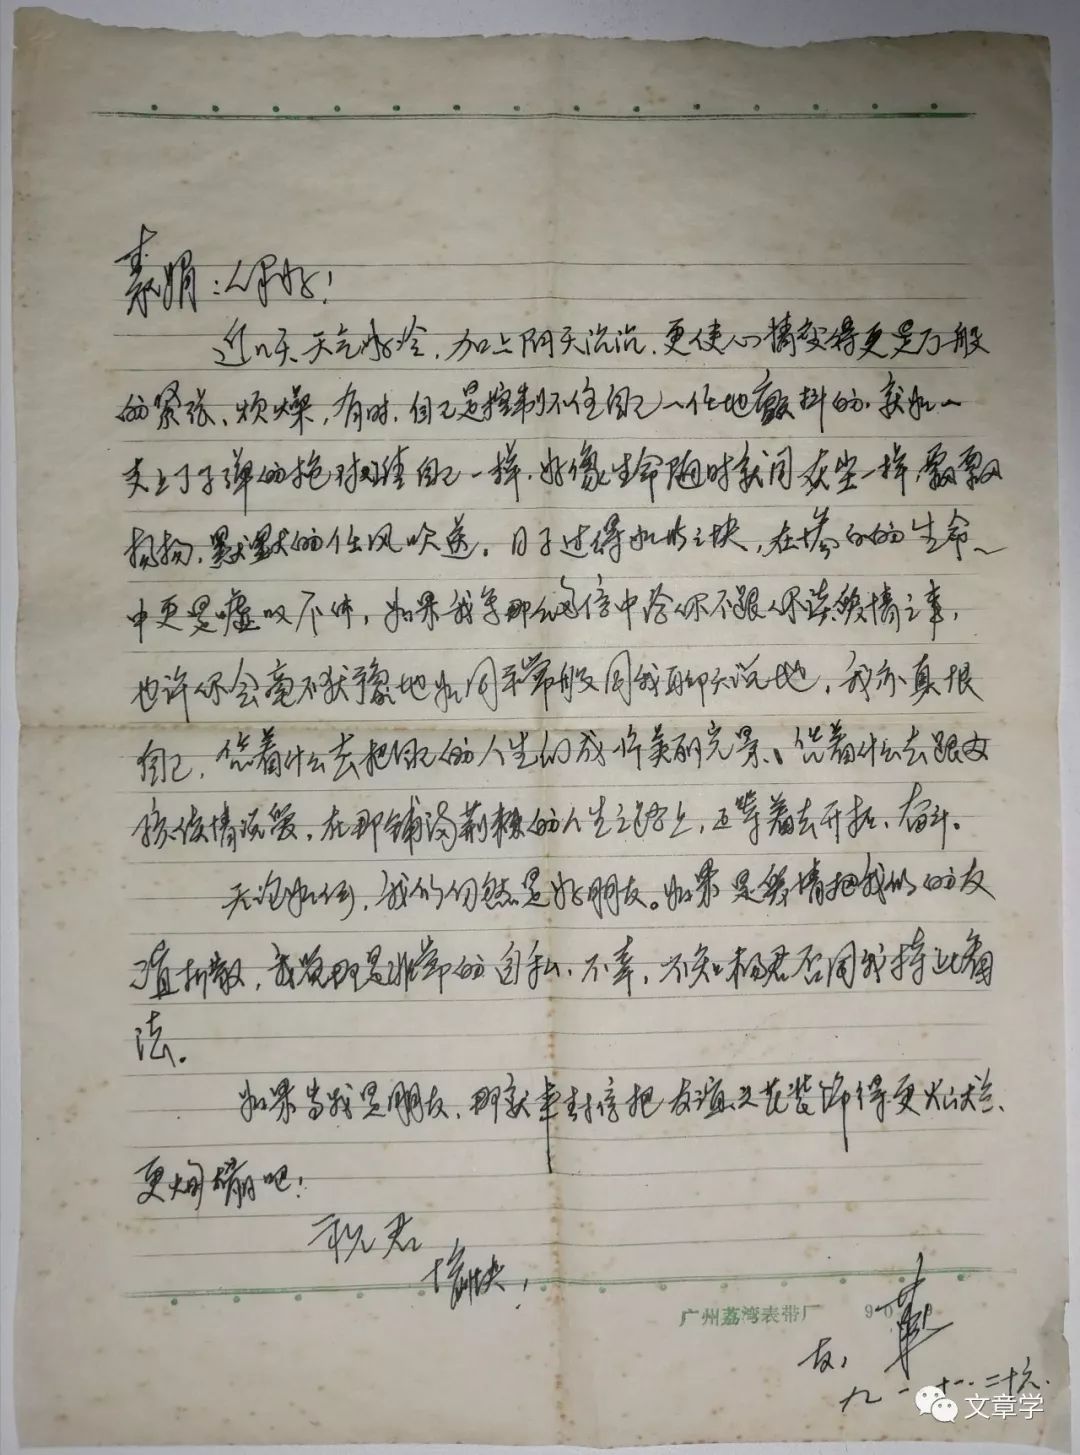 素娟：你好！
近几天天气冰冷，加上阴天沉沉，更使心情变得更是万般
的紧张、烦燥，有时，自己是控制不住自己一任地颤抖的，就如一
支上了子弹的枪对准自己一样，好像生命随时就同灰尘一样，飘飘
扬扬，默默的任风吹送。日子过得如此之快，在惨白的生命
中更是嘘叹不休，如果我在那么的信中给你不跟你谈爱情之事，
也许你会毫不犹豫地如同平常般同我聊天说地，我亦真恨
自己，凭着什么去把自己的人生的成许美丽光景、凭着什么去跟女
孩谈情说爱，在那铺满荆棘的人生之路上，还等着去开拓、奋斗。
无论如何，我们仍然是好朋友。如果是爱情把我们的友
谊拆散，我觉那是非常的自私、不幸，不知杨君否同我持此看
法。
如果当我是朋友，那就来封信把友谊之花装饰得更灿烂、
更炳辉吧！
祝君
愉快！
广州荔湾表带厂 90
友：
九一·十一·二十六.
文章学